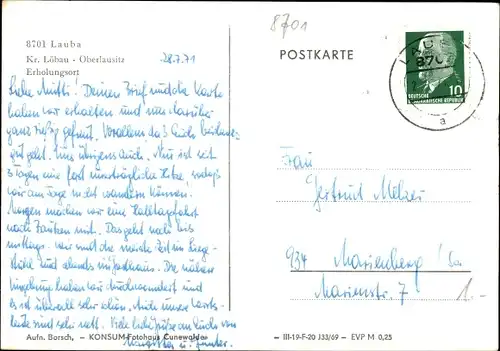 8701 Lauba
Kr. Löbau - Oberlausitz
Erholungsort
28.7.71
Liebe Mutti! Deinen Brief und die Karte
haben wir erhalten und uns darüber
ganz riesig gefreut. Vor allem das es Euch
gut geht. Uns übrigens auch. Nur ist seit
3 Tagen eine fast unerträgliche Hitze, sodaß
wir am Tage nicht wandern können.
Morgen machen wir eine Halbtagsfahrt
nach Bautzen mit. Das geht noch bis
mittags. und die meiste Zeit im Liege-
stuhl und abends Die nähere
Umgebung haben wir durchwandert und
es ist überall sehr schön. Auch unsere Wirts-
leute sind sehr nett. Viele liebe Grüße an Euch von
u. Günter.
Aufn. Borsch, – KONSUM-Fotohaus Cunewalde
8701
POSTKARTE
LAUBA
870
a
10
DEUTSCHE
DEMOKRATISCHE REPUBLIK
Frau
Gertrud Melzer
934 Marienberg/Sa
Marienstr. 7
1.-
III-19-F-20 J33/69 – EVP M 0,25